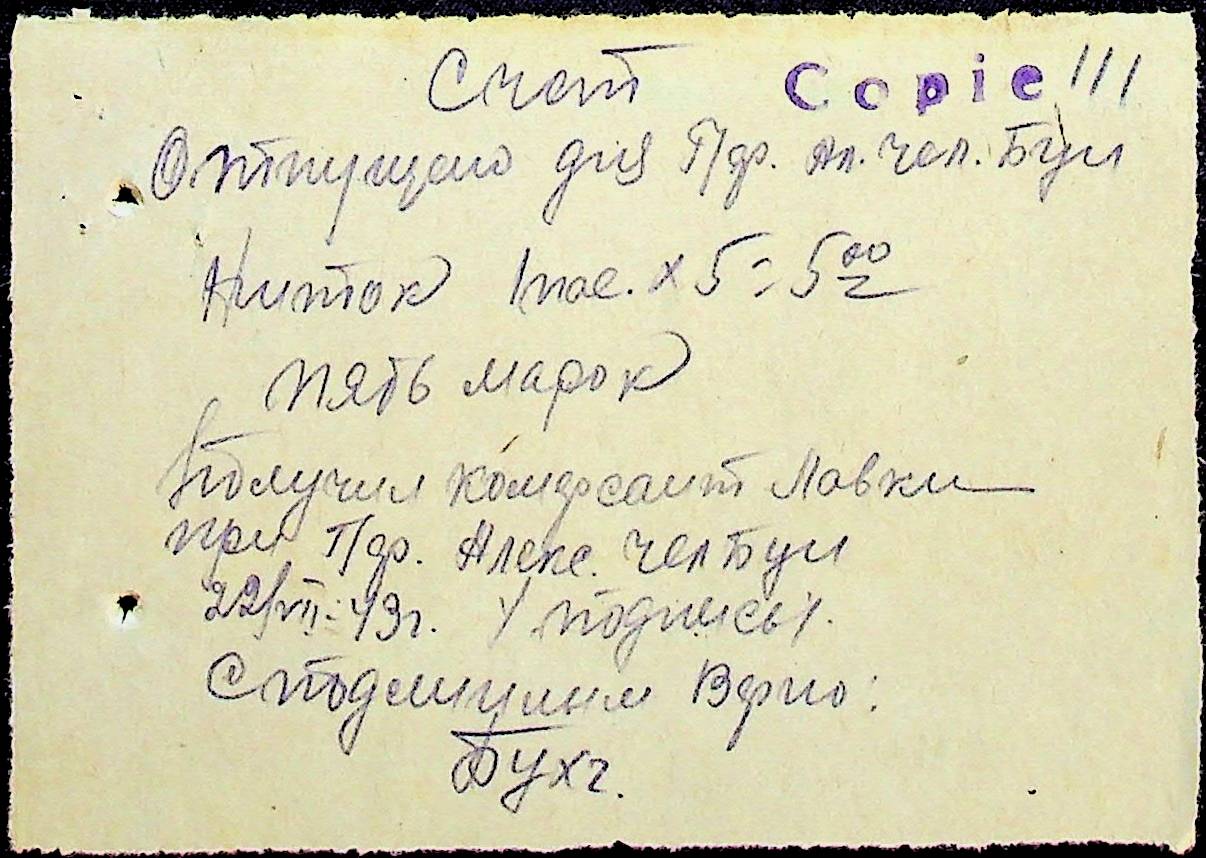 Счет Copie !!!
Отпущено для П/др. Ал. чел. Буи
Ниток 1 пас. х 5 = 5 00
пять марок
Получил комерсант Лавки
при П/др. Алекс. чел Буи
22/VII-43г. / подпись /.
С подлинным Верно:
Бухг.